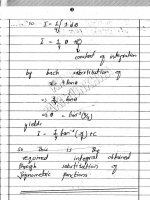 so I = 1/4 ∫ 1 dθ
I = 1/4 θ + C
constant of integration
by back substitution of
x = 4 tanθ
⇒ x/4 = tanθ
⇒ θ = tan⁻¹(x/4)
yields
I = 1/4 tan⁻¹(x/4) + C
so this is the
required integral obtained
through substitution of
trigonometric functions